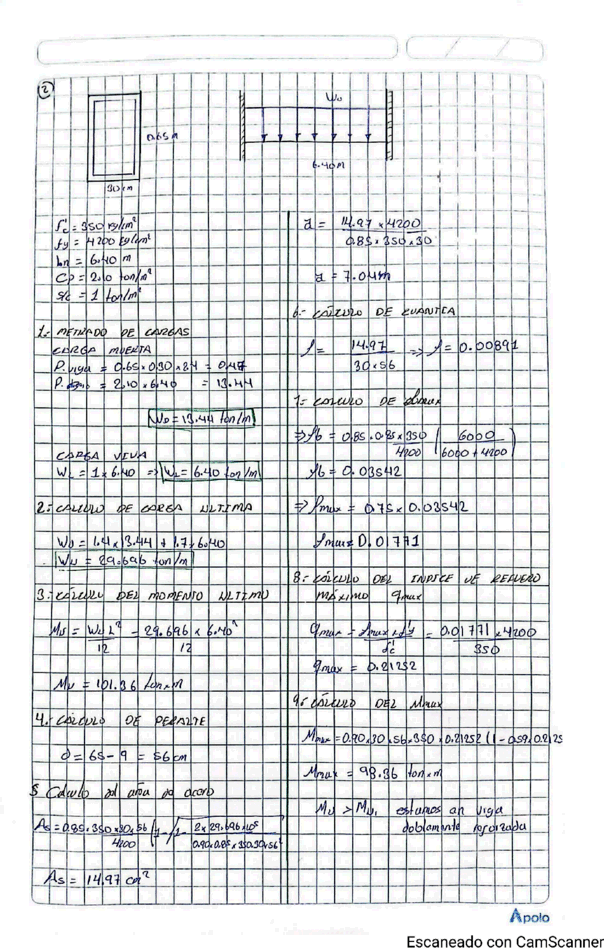 2
Wu
0.65m
6.40m
30cm
f'c = 350 kg/cm²
fy = 4200 kg/cm²
Ln = 6.40 m
Cp = 2.10 ton/m²
s/c = 1 ton/m²
1.- METRADO DE CARGAS
CARGA MUERTA
P. viga = 0.65 x 0.30 x 2.4 = 0.47
= 2.10 x 6.40 = 13.44
WD = 13.44 ton/m
CARGA VIVA
WL = 1 x 6.40 => WL = 6.40 ton/m
2.- CALCULO DE CARGA ULTIMA
WU = 1.4 x 13.44 + 1.7 x 6.40
WU = 29.696 ton/m
3.- CÁLCULO DEL MOMENTO ULTIMO
MU = WU L² / 12 = 29.696 x 6.40² / 12
MU = 101.36 ton x m
4.- CÁLCULO DE PERALTE
d = 65 - 9 = 56 cm
5 Calculo del area de acero
As = 0.85 x 350 x 30 x 56 / 4200 (1 - √1 - 2 x 29.696 x 10⁵ / 0.90 x 0.85 x 350 x 30 x 56²
As = 14.97 cm²
a = 14.97 x 4200 / 0.85 x 350 x 30
a = 7.04m
6.- CÁLCULO DE CUANTIA
f = 14.97 / 30 x 56 => f = 0.00891
7.- CALCULO DE
=> fb = 0.85 x 0.85 x 350 / 4200 ( 6000 / 6000 + 4200 )
fb = 0.03542
=> fmax = 0.75 x 0.03542
fmax = 0.01771
8.- CÁLCULO DEL INDICE DE REFUERZO
MÁXIMO qmax
qmax = fmax x fy / f'c = 0.01771 x 4200 / 350
qmax = 0.21252
9.- CÁLCULO DEL Mmax
Mmax = 0.90 x 30 x 56 x 350 x 0.21252 (1 - 0.59 x 0.2125
Mmax = 98.36 ton x m
MU > MU, estamos en viga
doblemente reforzada
Apolo
Escaneado con CamScanner